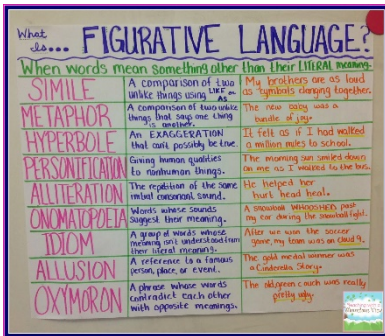 What
Is... FIGURATIVE LANGUAGE?
When words mean something other than their LITERAL meaning.
SIMILE
A comparison of two
unlike things using LIKE or
AS
My brothers are as loud
as cymbals clanging together.
METAPHOR
A comparison of two unlike
things that says one thing
is another.
The new baby was a
bundle of joy.
HYPERBOLE
An EXAGGERATION
that can't possibly be true.
It felt as if I had walked
a million miles to school.
PERSONIFICATION
Giving human qualities
to nonhuman things.
The morning sun smiled down
on me as I waited for the bus.
ALLITERATION
The repetition of the same
initial consonant sound.
He helped her
hurt head heal.
ONOMATOPOEIA
Words whose sounds
suggest their meaning.
A snowball WHOOSHED past
my ear during the snowball fight.
IDIOM
A group of words whose
meaning isn't understood from
their literal meaning.
After we won the soccer
game, my team was on cloud 9.
ALLUSION
A reference to a famous
person, place, or event.
The gold medal summer was
a Cinderella Story.
OXYMORON
A phrase whose words
contradict each other
with opposite meanings.
The old, green couch was really
pretty ugly.